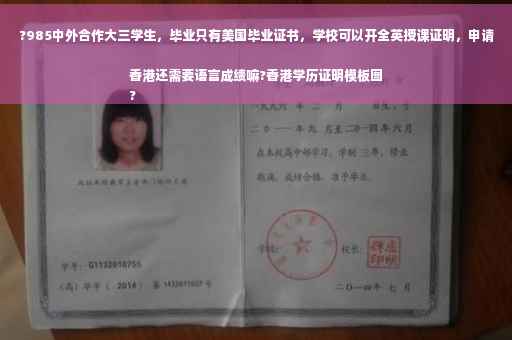 ?985中外合作大三学生，毕业只有美国毕业证书，学校可以开全英授课证明，申请
香港还需要语言成绩嘛?香港学历证明模板图
?
九九六 年 二 月
二〇一一年 九 月至二〇一四年 六 月
在本校高中部学习，学制 三年，修业
期满，成绩合格，准予毕业。
学校：
校长：
学号：G1132010755
(高) 毕字 ( 2014 )
二〇一四年 七 月